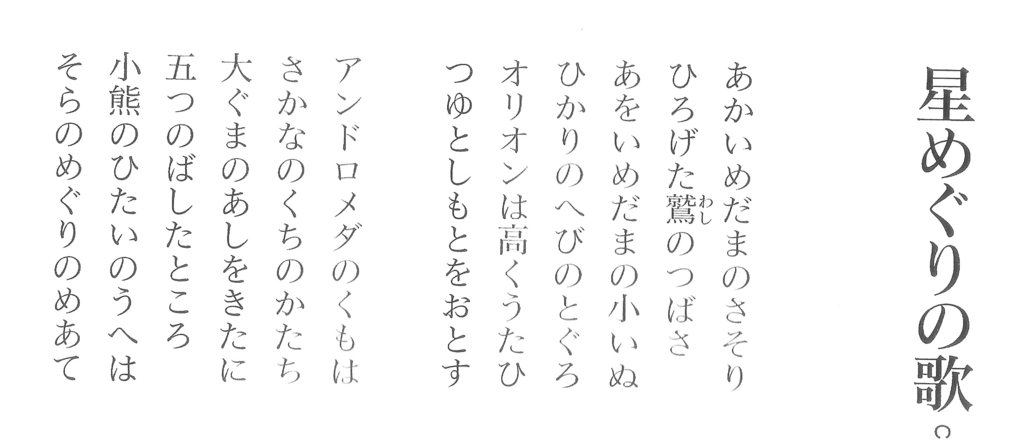 星めぐりの歌。
あかいめだまのさそり
ひろげた鷲のつばさ
あをいめだまの小いぬ
ひかりのへびのとぐろ
オリオンは高くうたひ
つゆとしもとをおとす
アンドロメダのくもは
さかなのくちのかたち
大ぐまのあしをきたに
五つのばしたところ
小熊のひたいのうへは
そらのめぐりのめあて